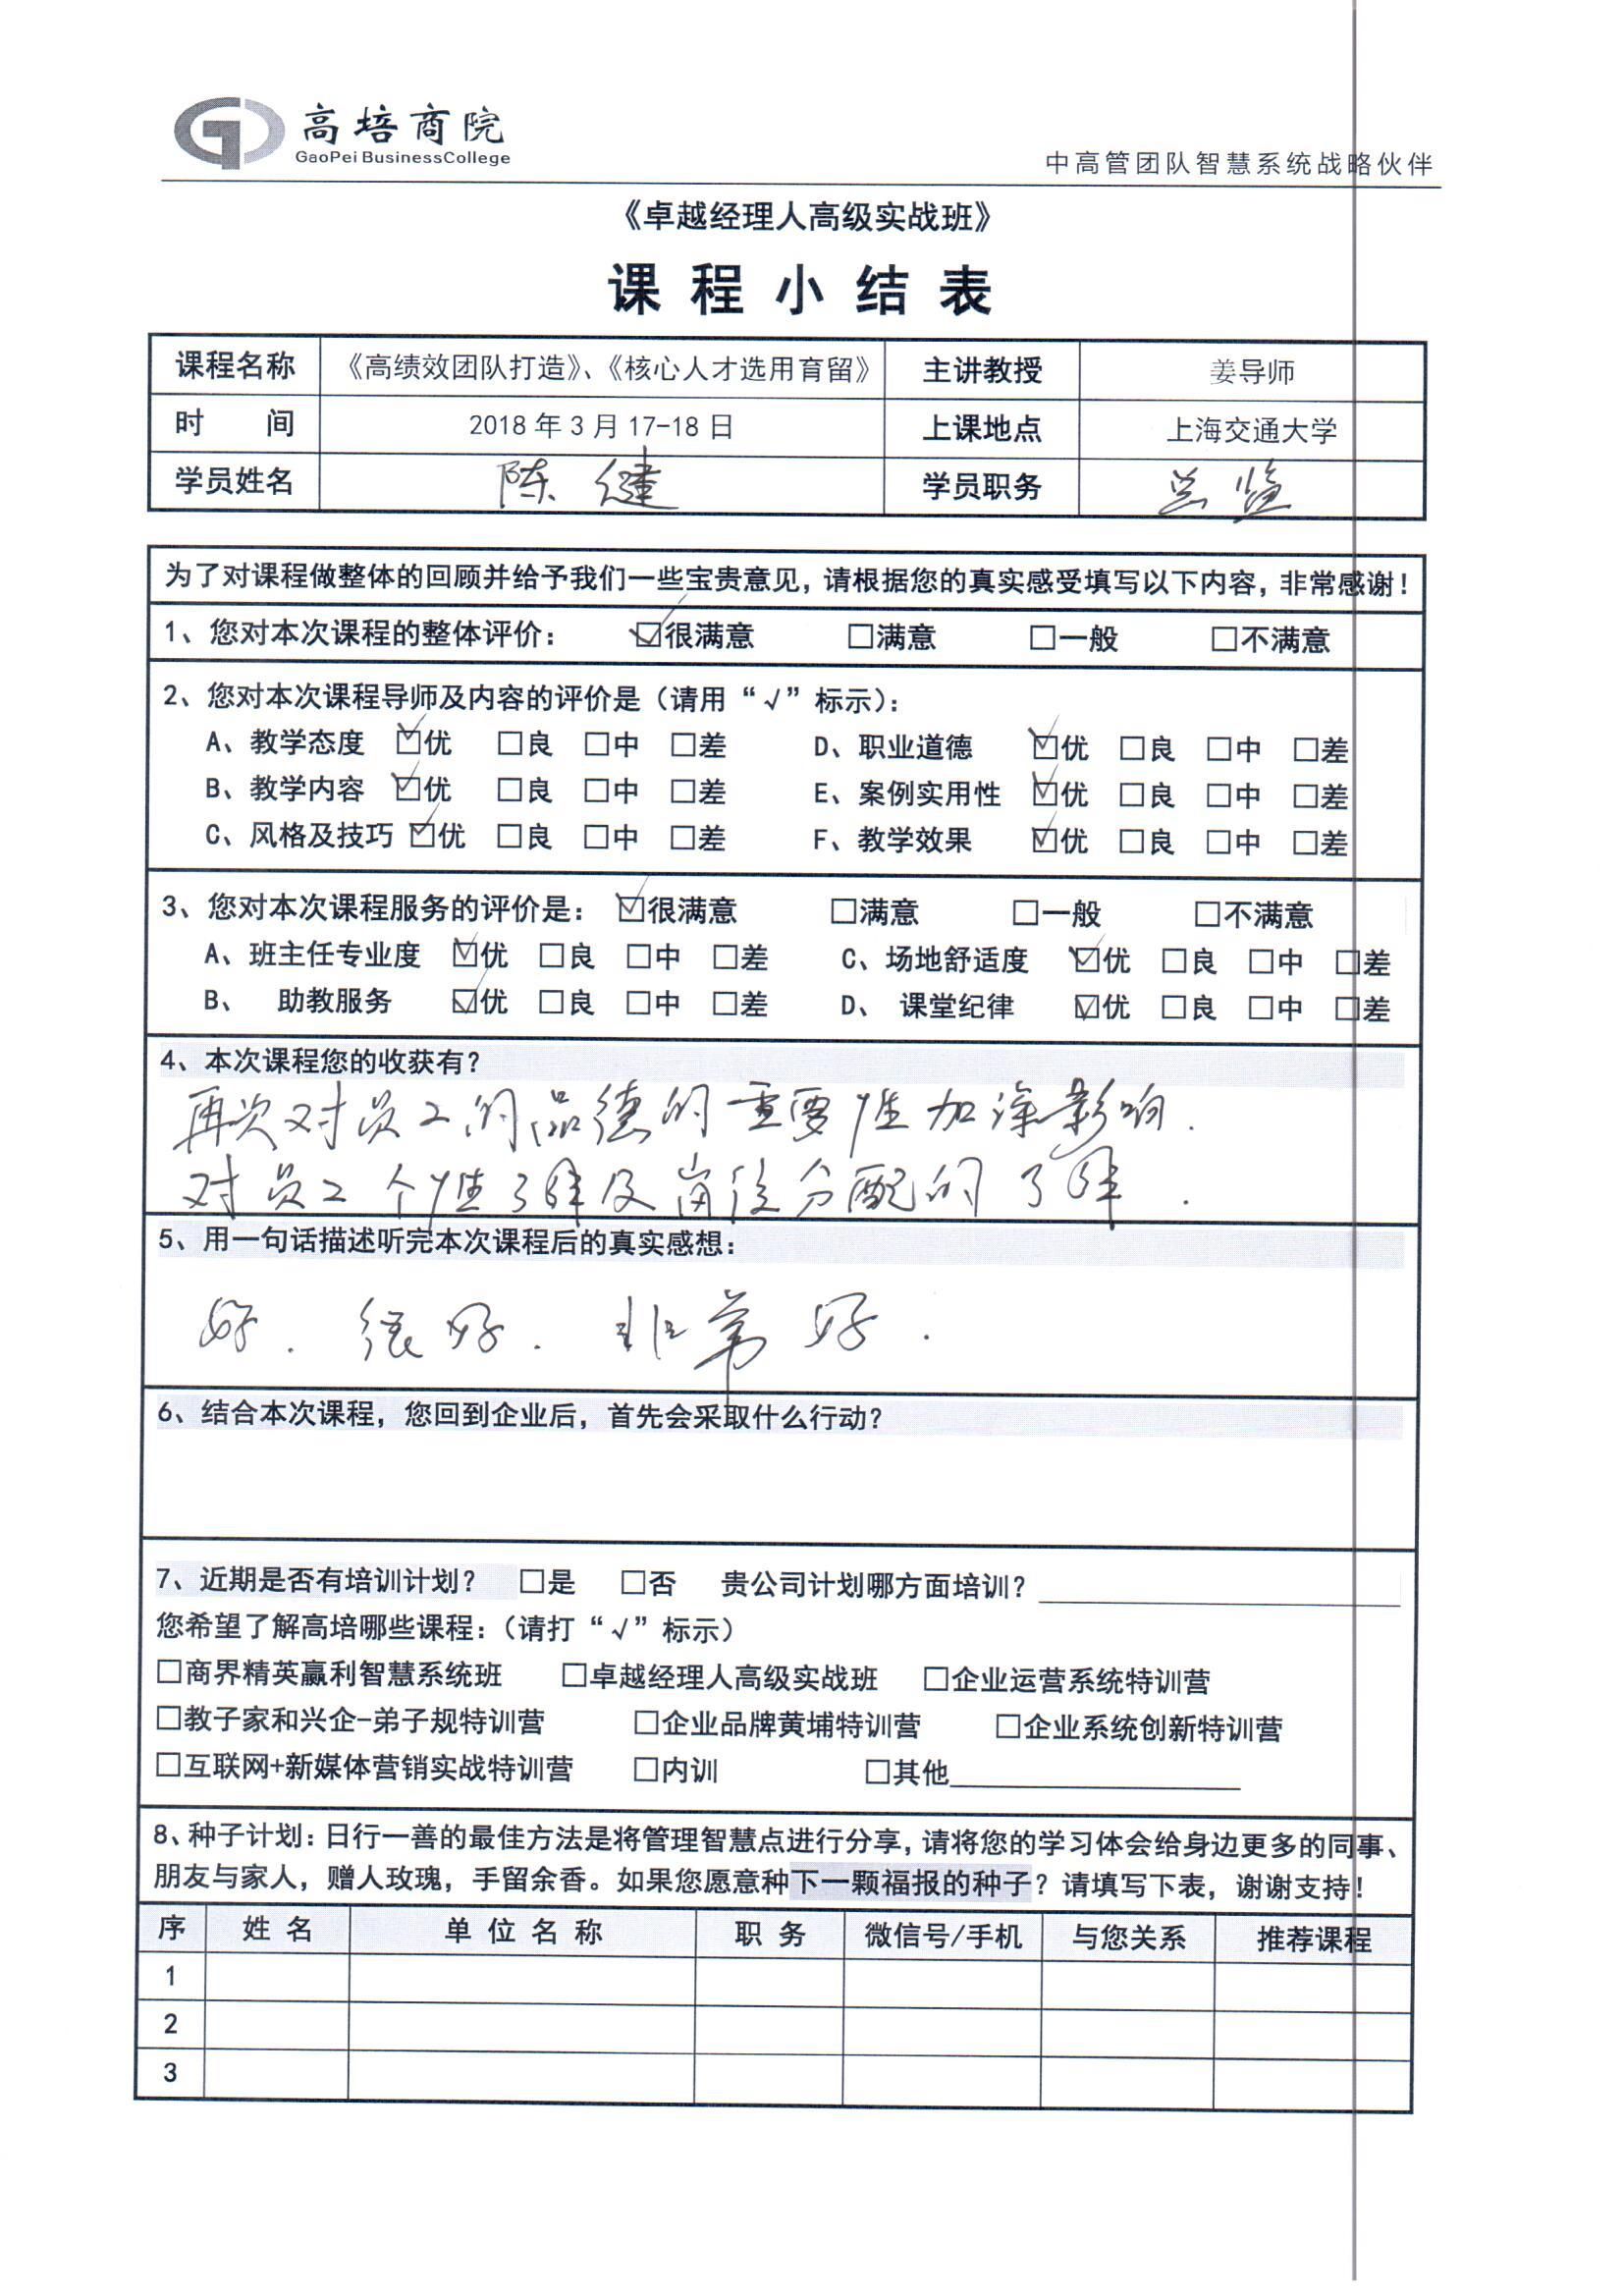 高培商院
GaoPei BusinessCollege
中高管团队智慧系统战略伙伴
《卓越经理人高级实战班》
课程小结表
课程名称 《高绩效团队打造》、《核心人才选用育留》 主讲教授 姜导师
时 间 2018年3月17-18日 上课地点 上海交通大学
学员姓名 陈健 学员职务 总监
为了对课程做整体的回顾并给予我们一些宝贵意见，请根据您的真实感受填写以下内容，非常感谢！
1、您对本次课程的整体评价： ☑很满意 □满意 □一般 □不满意
2、您对本次课程导师及内容的评价是（请用“√”标示）：
A、教学态度 ☑优 □良 □中 □差 D、职业道德 ☑优 □良 □中 □差
B、教学内容 ☑优 □良 □中 □差 E、案例实用性 ☑优 □良 □中 □差
C、风格及技巧 ☑优 □良 □中 □差 F、教学效果 ☑优 □良 □中 □差
3、您对本次课程服务的评价是： ☑很满意 □满意 □一般 □不满意
A、班主任专业度 ☑优 □良 □中 □差 C、场地舒适度 ☑优 □良 □中 □差
B、 助教服务 ☑优 □良 □中 □差 D、 课堂纪律 ☑优 □良 □中 □差
4、本次课程您的收获有？
再次对员工的品德的重要性加深影响.
对员工个性了解及岗位分配的了解.
5、用一句话描述听完本次课程后的真实感想：
好. 很好. 非常好.
6、结合本次课程，您回到企业后，首先会采取什么行动？
7、近期是否有培训计划？ □是 □否 贵公司计划哪方面培训？
您希望了解高培哪些课程：（请打“√”标示）
□商界精英赢利智慧系统班 □卓越经理人高级实战班 □企业运营系统特训营
□教子家和兴企-弟子规特训营 □企业品牌黄埔特训营 □企业系统创新特训营
□互联网+新媒体营销实战特训营 □内训 □其他
8、种子计划：日行一善的最佳方法是将管理智慧点进行分享，请将您的学习体会给身边更多的同事、
朋友与家人，赠人玫瑰，手留余香。如果您愿意种下一颗福报的种子？请填写下表，谢谢支持！
序 姓名 单位名称 职务 微信号/手机 与您关系 推荐课程
1
2
3